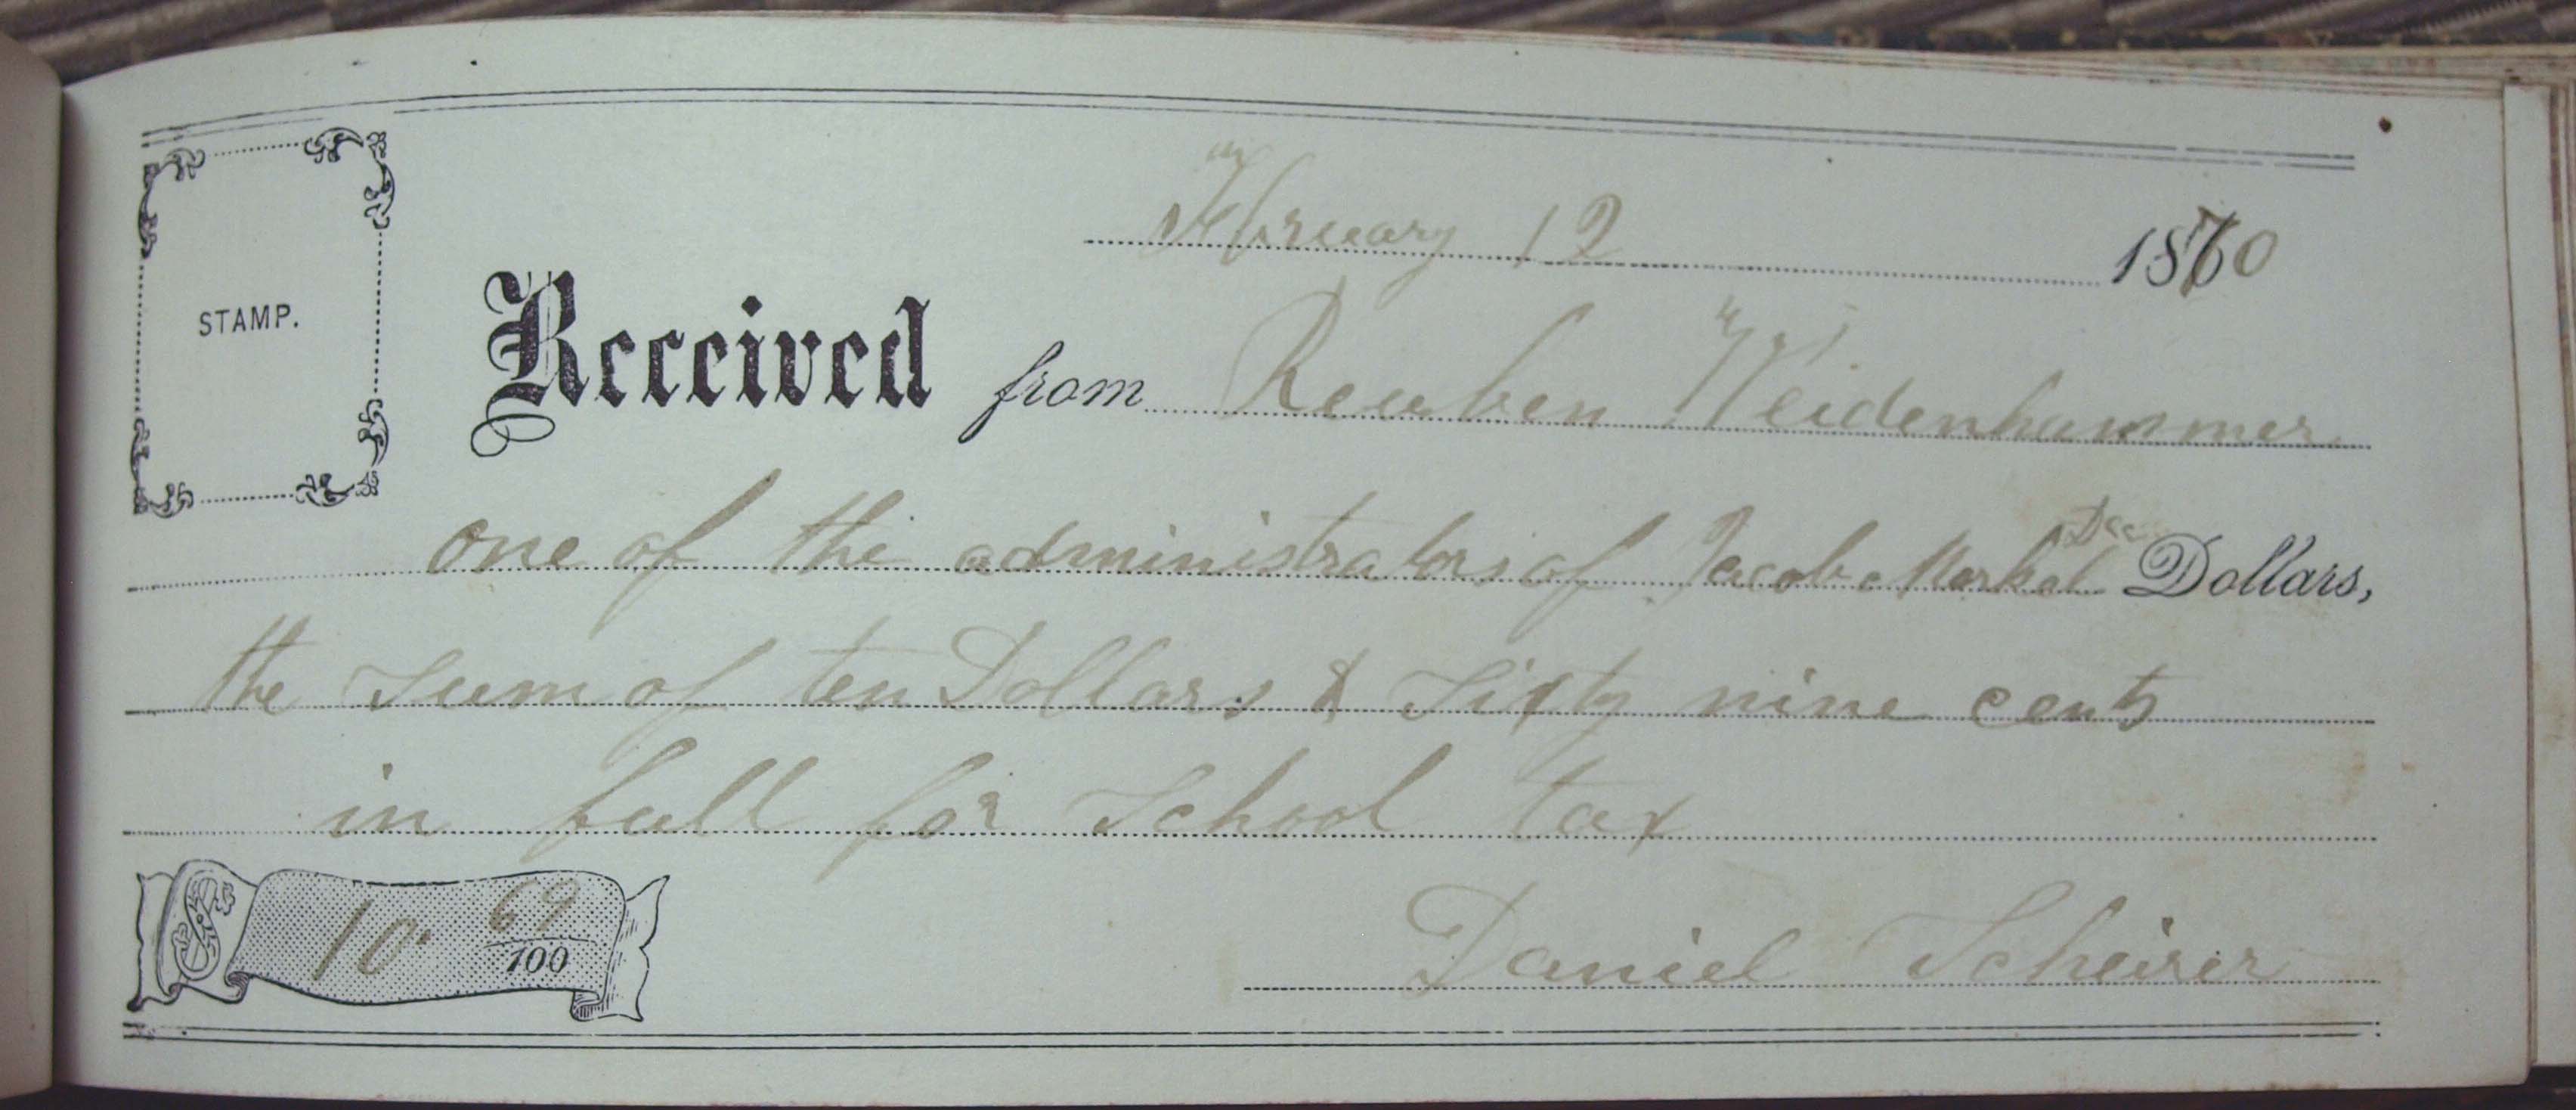 STAMP.
February 12 1870
Received from Reuben Weidenhammer
one of the administrators of Jacob Merkel Dec Dollars,
the Sum of ten Dollars & Sixty nine cents
in full for School tax
$ 10. 69/100
Daniel Scheirer